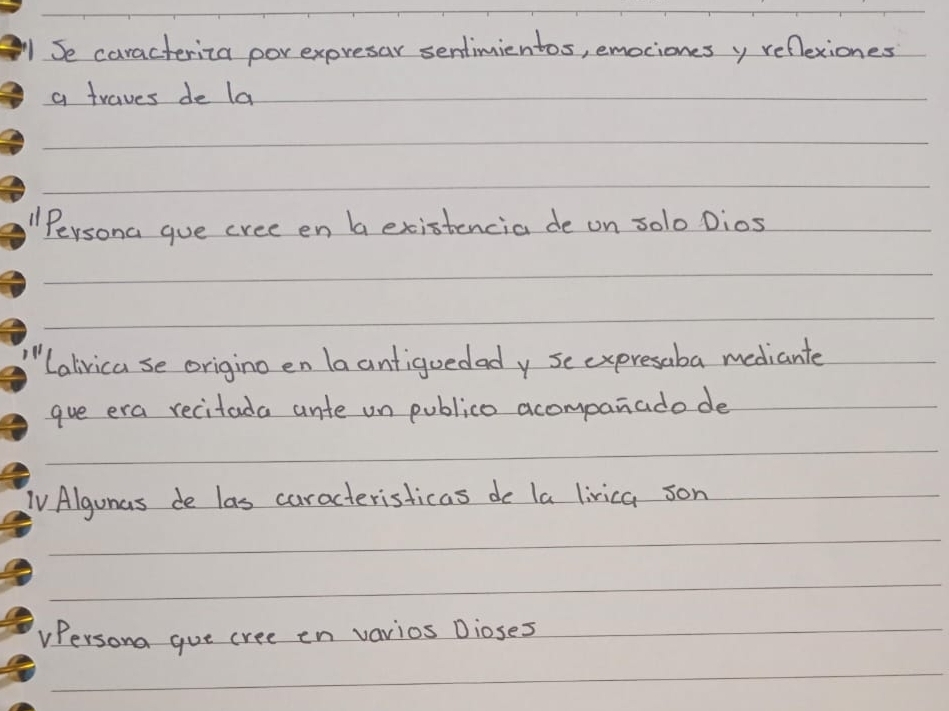 I Se caracteriza por expresar sentimientos, emociones y reflexiones
a traves de la
II Persona que cree en la existencia de un solo Dios
III La lirica se origino en la antiguedad y se expresaba mediante
que era recitada ante un publico acompañado de
IV Algunas de las caracteristicas de la lirica son
V Persona que cree en varios Dioses